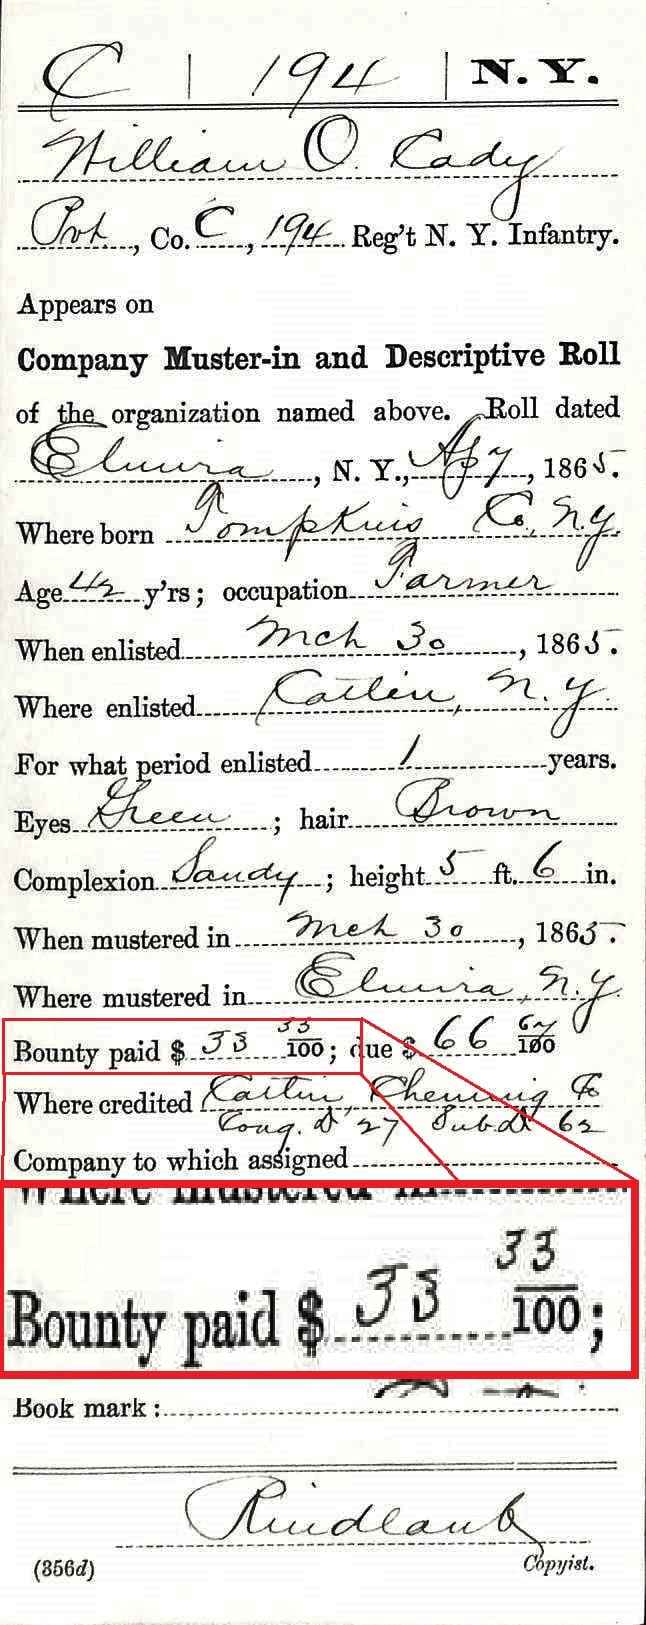 C | 194 | N. Y.
William O. Cady
Pvt, Co. C, 194 Reg't N. Y. Infantry.
Appears on
Company Muster-in and Descriptive Roll
of the organization named above. Roll dated
Elmira, N. Y., Ap 7, 1865.
Where born Tompkins Co, N.Y.
Age 42 y'rs; occupation Farmer
When enlisted Mch 30, 1865.
Where enlisted Catlin, N.Y.
For what period enlisted 1 years.
Eyes Green; hair Brown
Complexion Sandy; height 5 ft. 6 in.
When mustered in Mch 30, 1865.
Where mustered in Elmira, N.Y.
Bounty paid $ 33 33/100; due $ 66 67/100
Where credited Catlin, Chemung Co
Cong. D 27 Sub. D 62
Company to which assigned
Where mustered in
Bounty paid $ 33 33/100;
Book mark:
Rindlaub
(356d) Copyist.